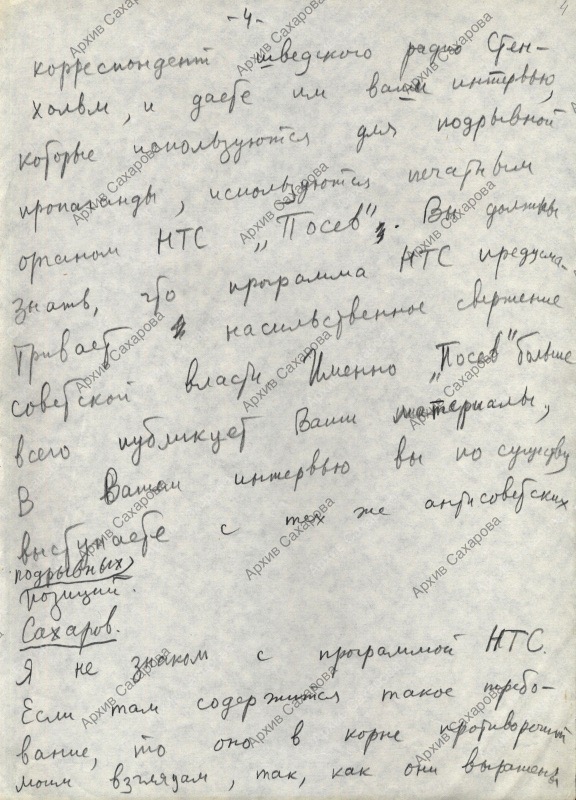 -4-
4
корреспондент шведского радио Стен-
хольм, и даете им ваши интервью,
которые используются для подрывной
пропаганды, используются печатным
органом НТС „Посев". Вы должны
знать, что программа НТС предусма-
тривает насильственное свержение
советской власти. Именно „Посев" больше
всего публикует Ваши материалы,
В Вашем интервью вы по существу
выступаете с тех же антисоветских
подрывных
позиций.
Сахаров.
Я не знаком с программой НТС.
Если там содержится такое требо-
вание, то оно в корне противоречит
моим взглядам, так, как они выражены